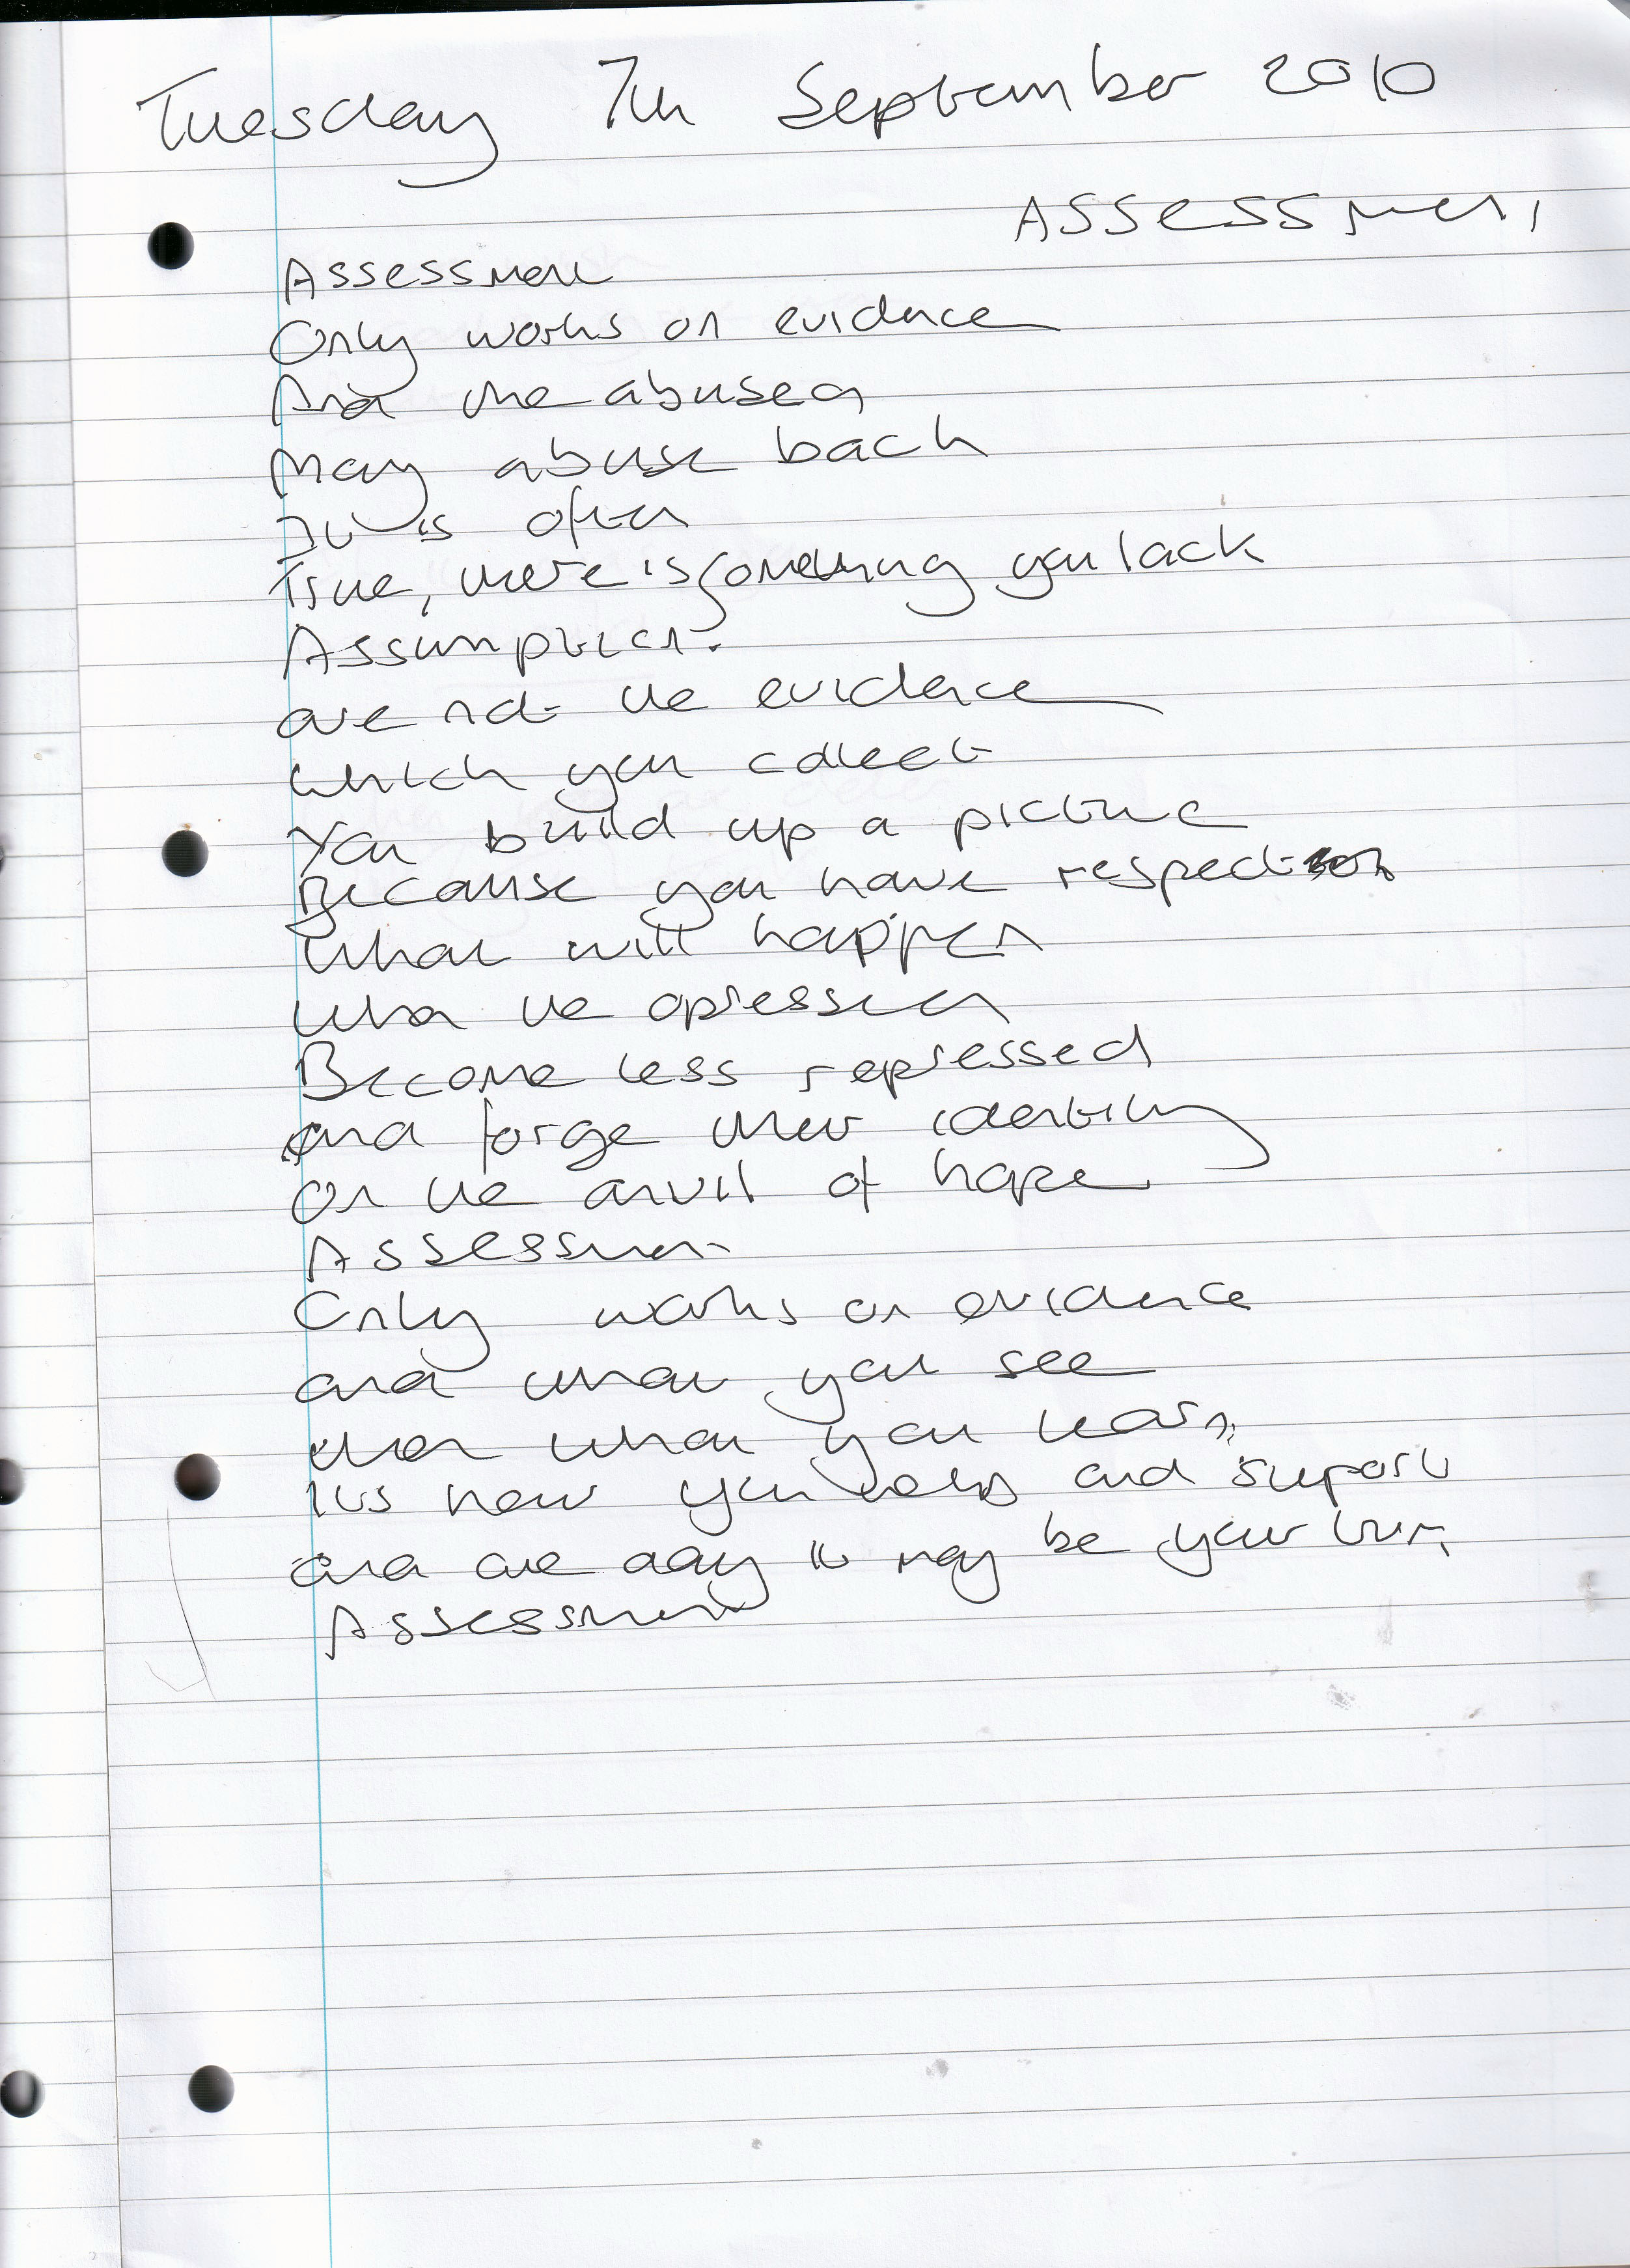 Tuesday 7th September 2010
Assessment
Assessment
Only works on evidence
And the abused
May abuse back
It is often
True, there is something you lack
Assumption.
are not the evidence
which you collect
You build up a picture
Because you have respect
what will happen
when the opression
Become less repressed
and forge their identity
on the anvil of hope
Assessment
Only works on evidence
and what you see
then what you learn
Its how you help and support
and one day it may be your turn
Assessment